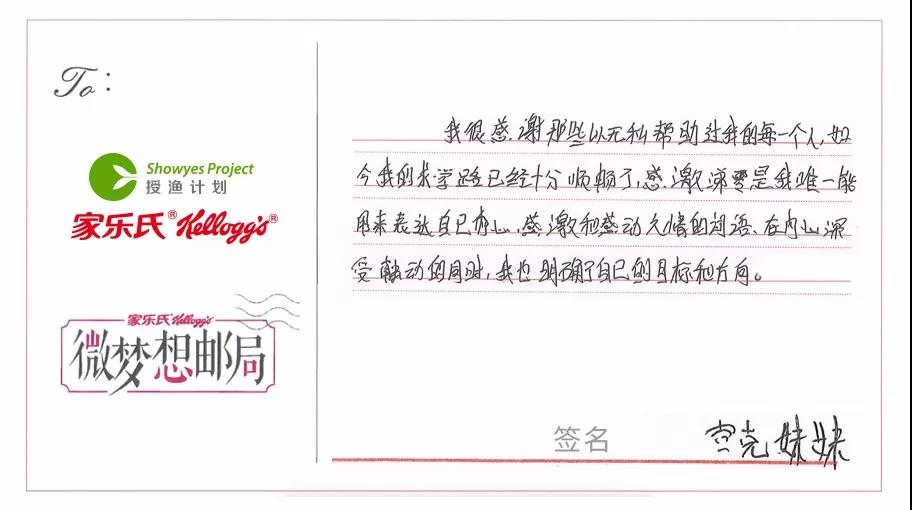 To:
Showyes Project
授渔计划
家乐氏® Kellogg's®
家乐氏 Kellogg's
微梦想邮局
我很感谢那些以无私帮助过我的每一个人,如
今我的求学路已经十分顺畅了,感激涕零是我唯一能
用来表达自己内心感激和感动之情的词语、在内心深
受触动的同时,我也明确了自己的目标和方向。
签名
妹妹